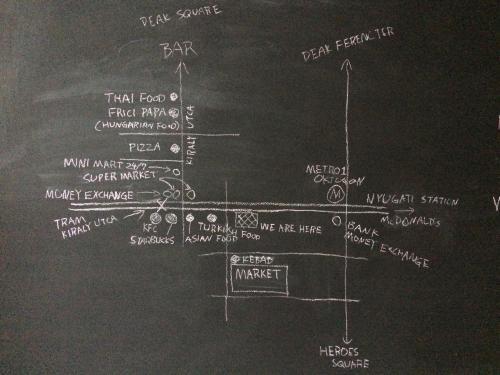 DEAK SQUARE
BAR
DEAK FERENCTER
THAI FOOD
FRICI PAPA
(HUNGARIAN FOOD)
KIRALY UTCA
PIZZA
MINI MART 24/7
SUPER MARKET
METRO 1
OKTOGON
MONEY EXCHANGE
NYUGATI STATION
MCDONALDS
TRAM
KIRALY UTCA
KFC
STARBUCKS
ASIAN FOOD
TURKISH FOOD
WE ARE HERE
BANK
MONEY EXCHANGE
M
KEBAB
MARKET
HEROES
SQUARE